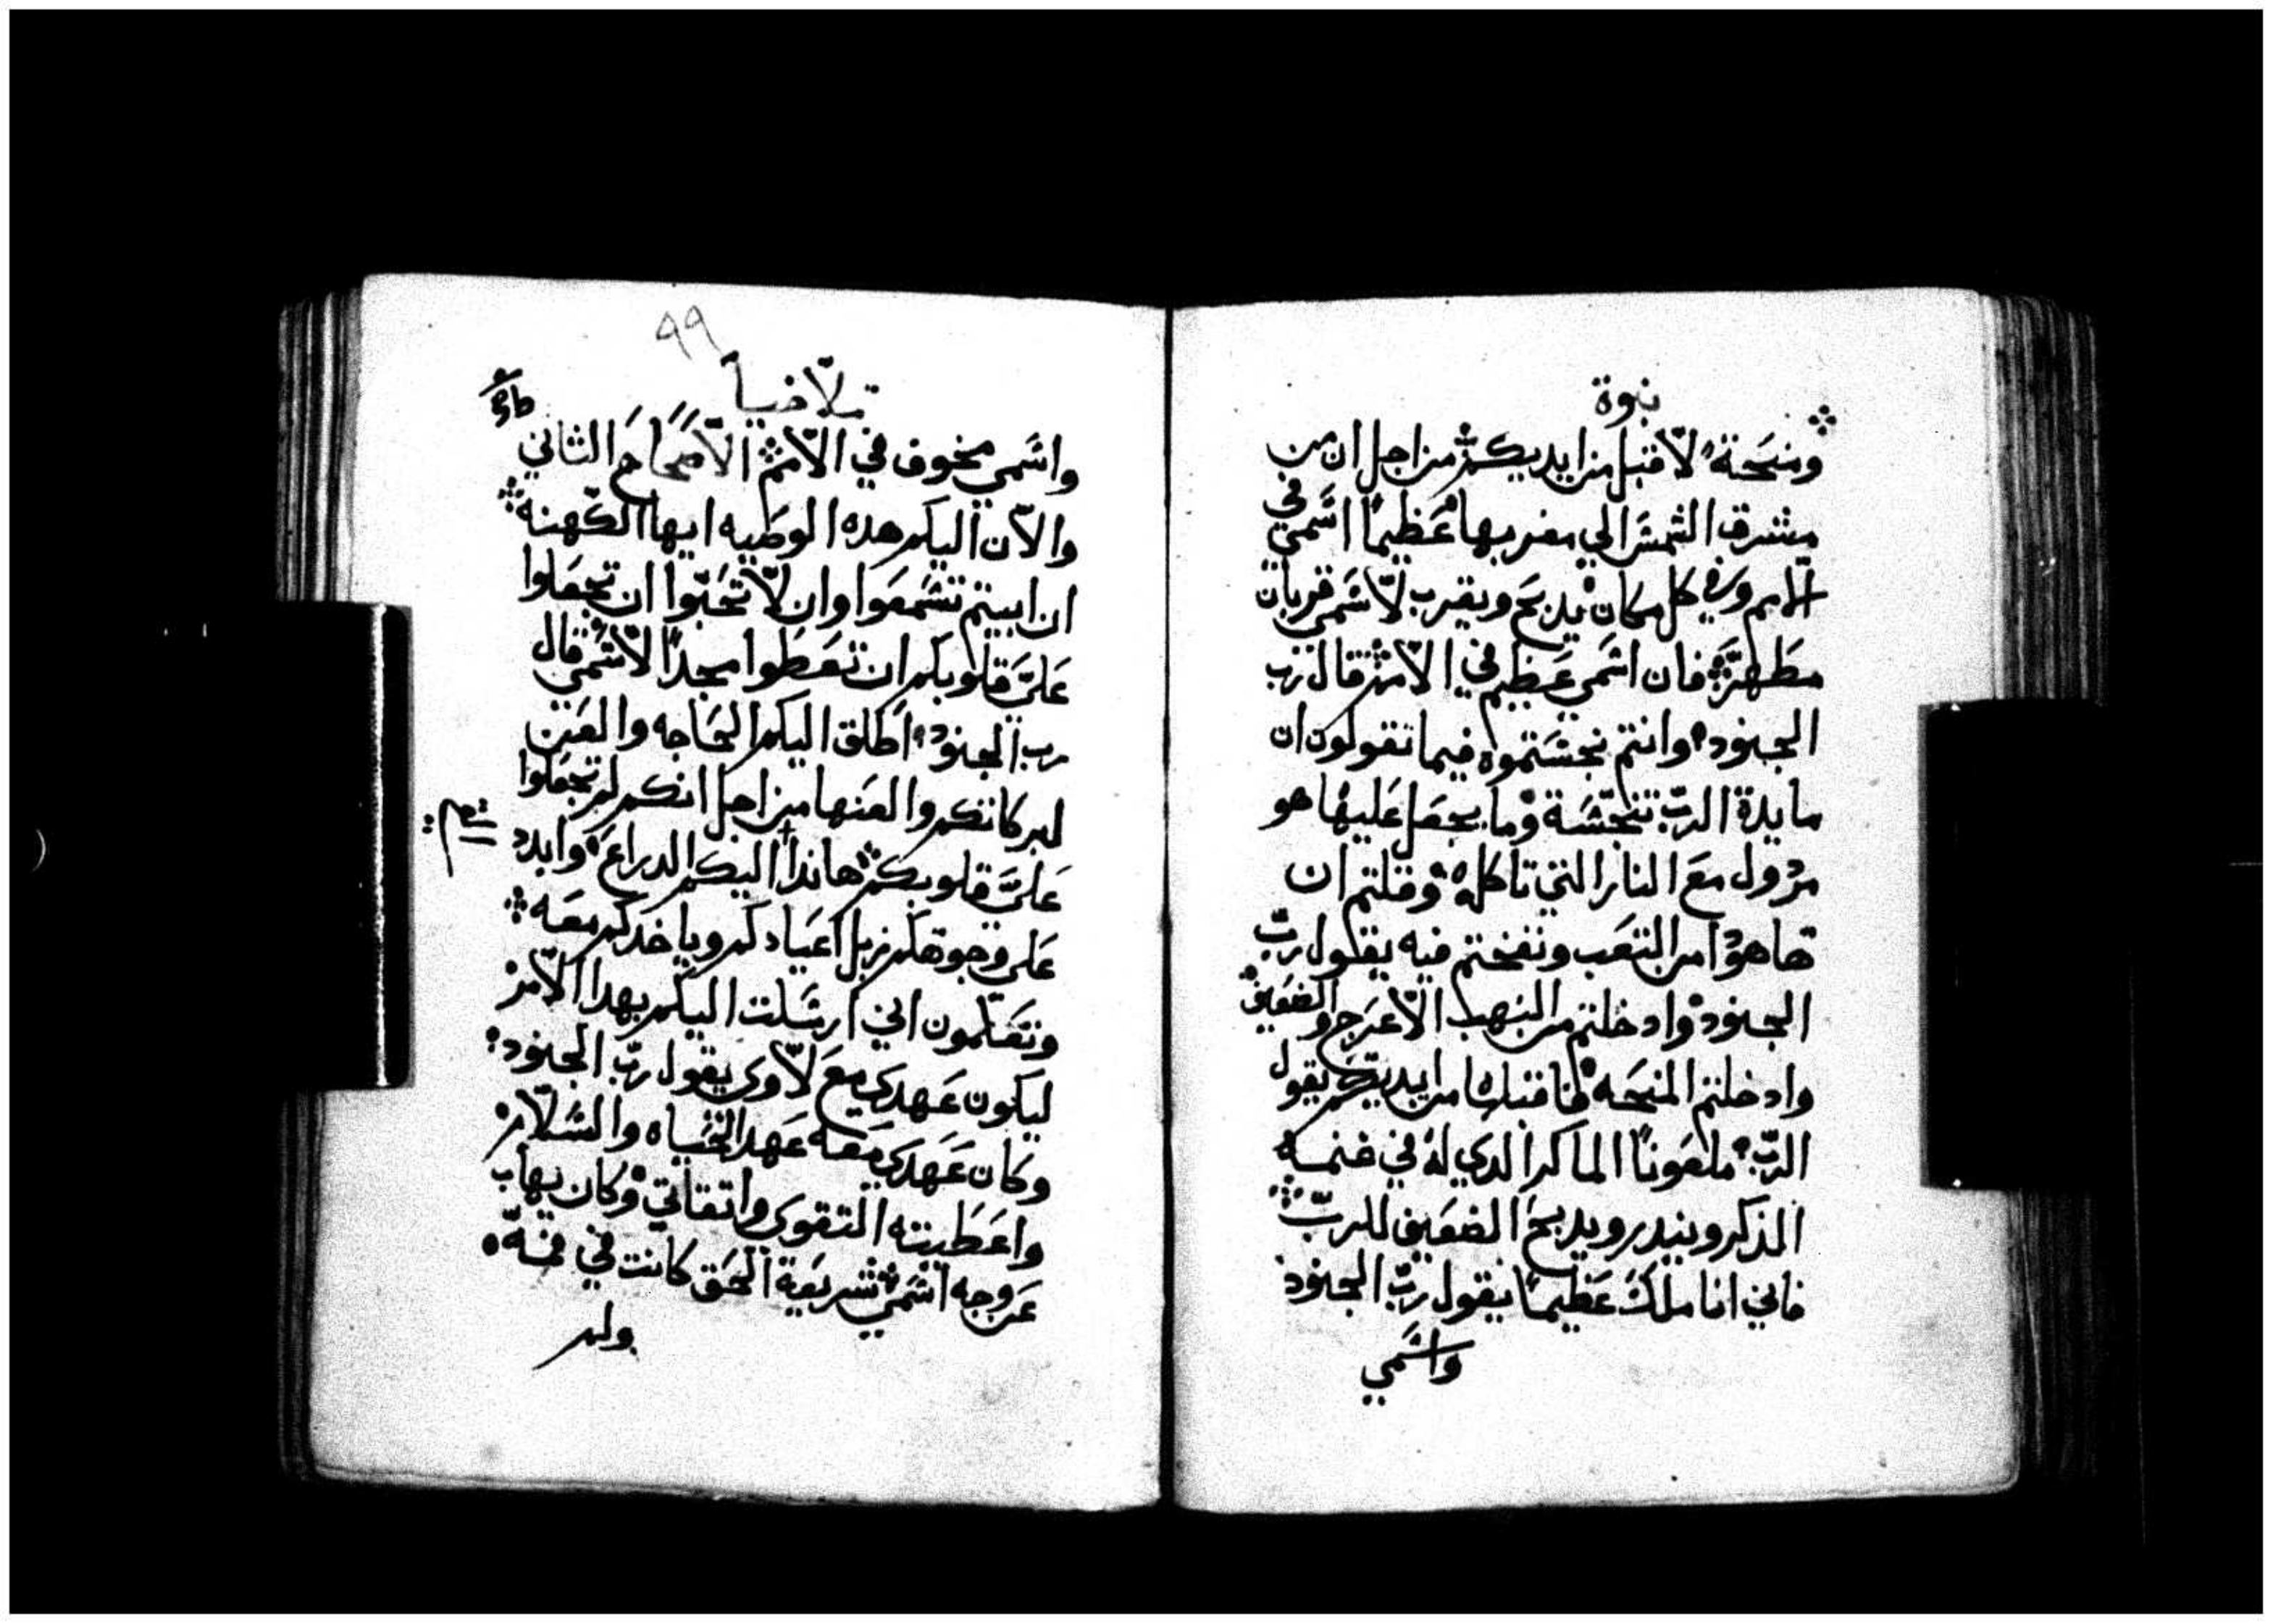 نبوة
ومنحة لا اقبل من ايديكم من اجل ان من
مشرق الشمس الي مغربها عظيمًا اسمي في
الامم وفي كل مكان يدبح ويقرب لاسمي قربان
مطهر فان اسمي عظيم في الامم قال رب
الجنود وانتم نجستموه فيما تقولون ان
مايدة الربّ تنجّسة وما يجعل عليها هو
مردول مع النار التي تاكله وقلتم ان
هاهودا من التعب ونفختم فيه يقول ربّ
الجنود وادخلتم من النهب الاعرج والضعيف
وادخلتم المنحه انا اقبلها من ايديكم يقول
الربّ ملعونًا الماكر الدي له في غنمه
الذكر ويندر ويدبح الضعيف للربّ
فاني انا ملك عظيمًا يقول ربّ الجنود
واسمي
٩٩
ملاخيا
واسمي مخوف في الامم الاصحاح الثاني
والان اليكم هده الوصيه ايها الكهنه
ان ابيتم تسمعوا وان لا تحبّوا ان تجعلوا
علىَ قلوبكم ان تعطوا مجدًا لاسمي قال
رب الجنود اطلق اليكم الحاجه والعن
لبركاتكم والعنها من اجل انكم لم تجعلوا
علىَ قلوبكم هاندا اليكم الدراع وابدد
على وجوهكم زبل اعيادكم وياخدكم معه
وتعلمون اني ارسلت اليكم بهدا الامر
ليكون عهدي مع لاوى يقول ربّ الجنود
وكان عهدي معه عهد الحياه والسلام
واعطيته التقوى واتقاني وكان يهاب
عن وجه اسمي شريعة الحق كانت في فمه
ولم